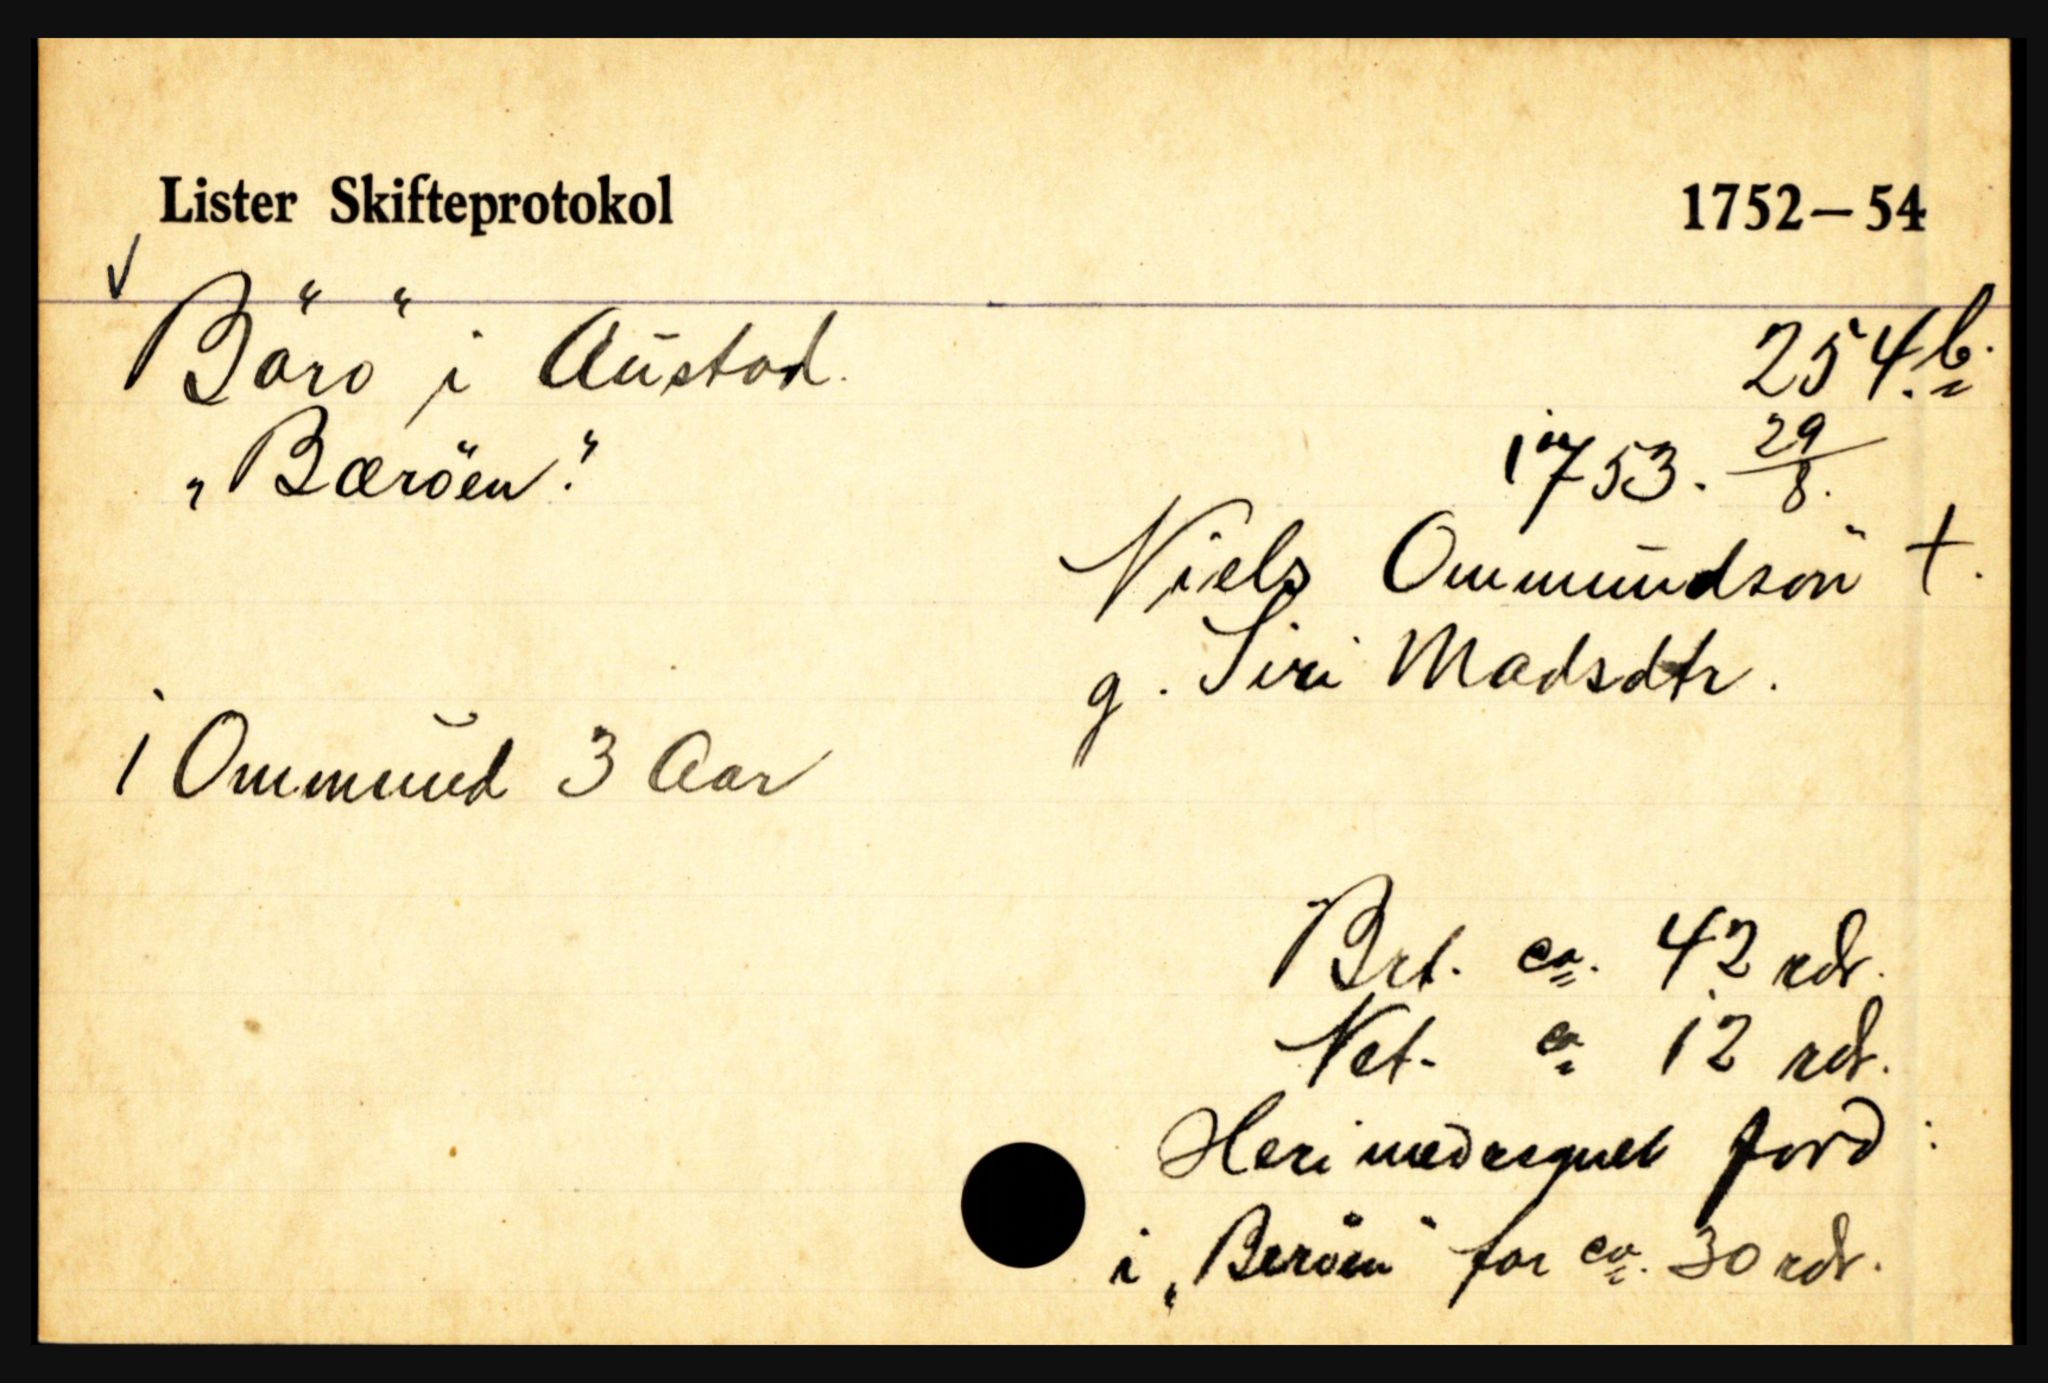 Lister Skifteprotokol 1752–54
✓
Bärö i Austad. 254.b.
„Bæröen." 1753. 29/8.
Niels Ommundson +.
g. Siri Madsdtr.
1 Ommund 3 Aar
Brt. ca. 42 rdr.
Net. ca 12 rdr.
Heri medregnet jord:
i „Beröen" for ca. 30 rdr.